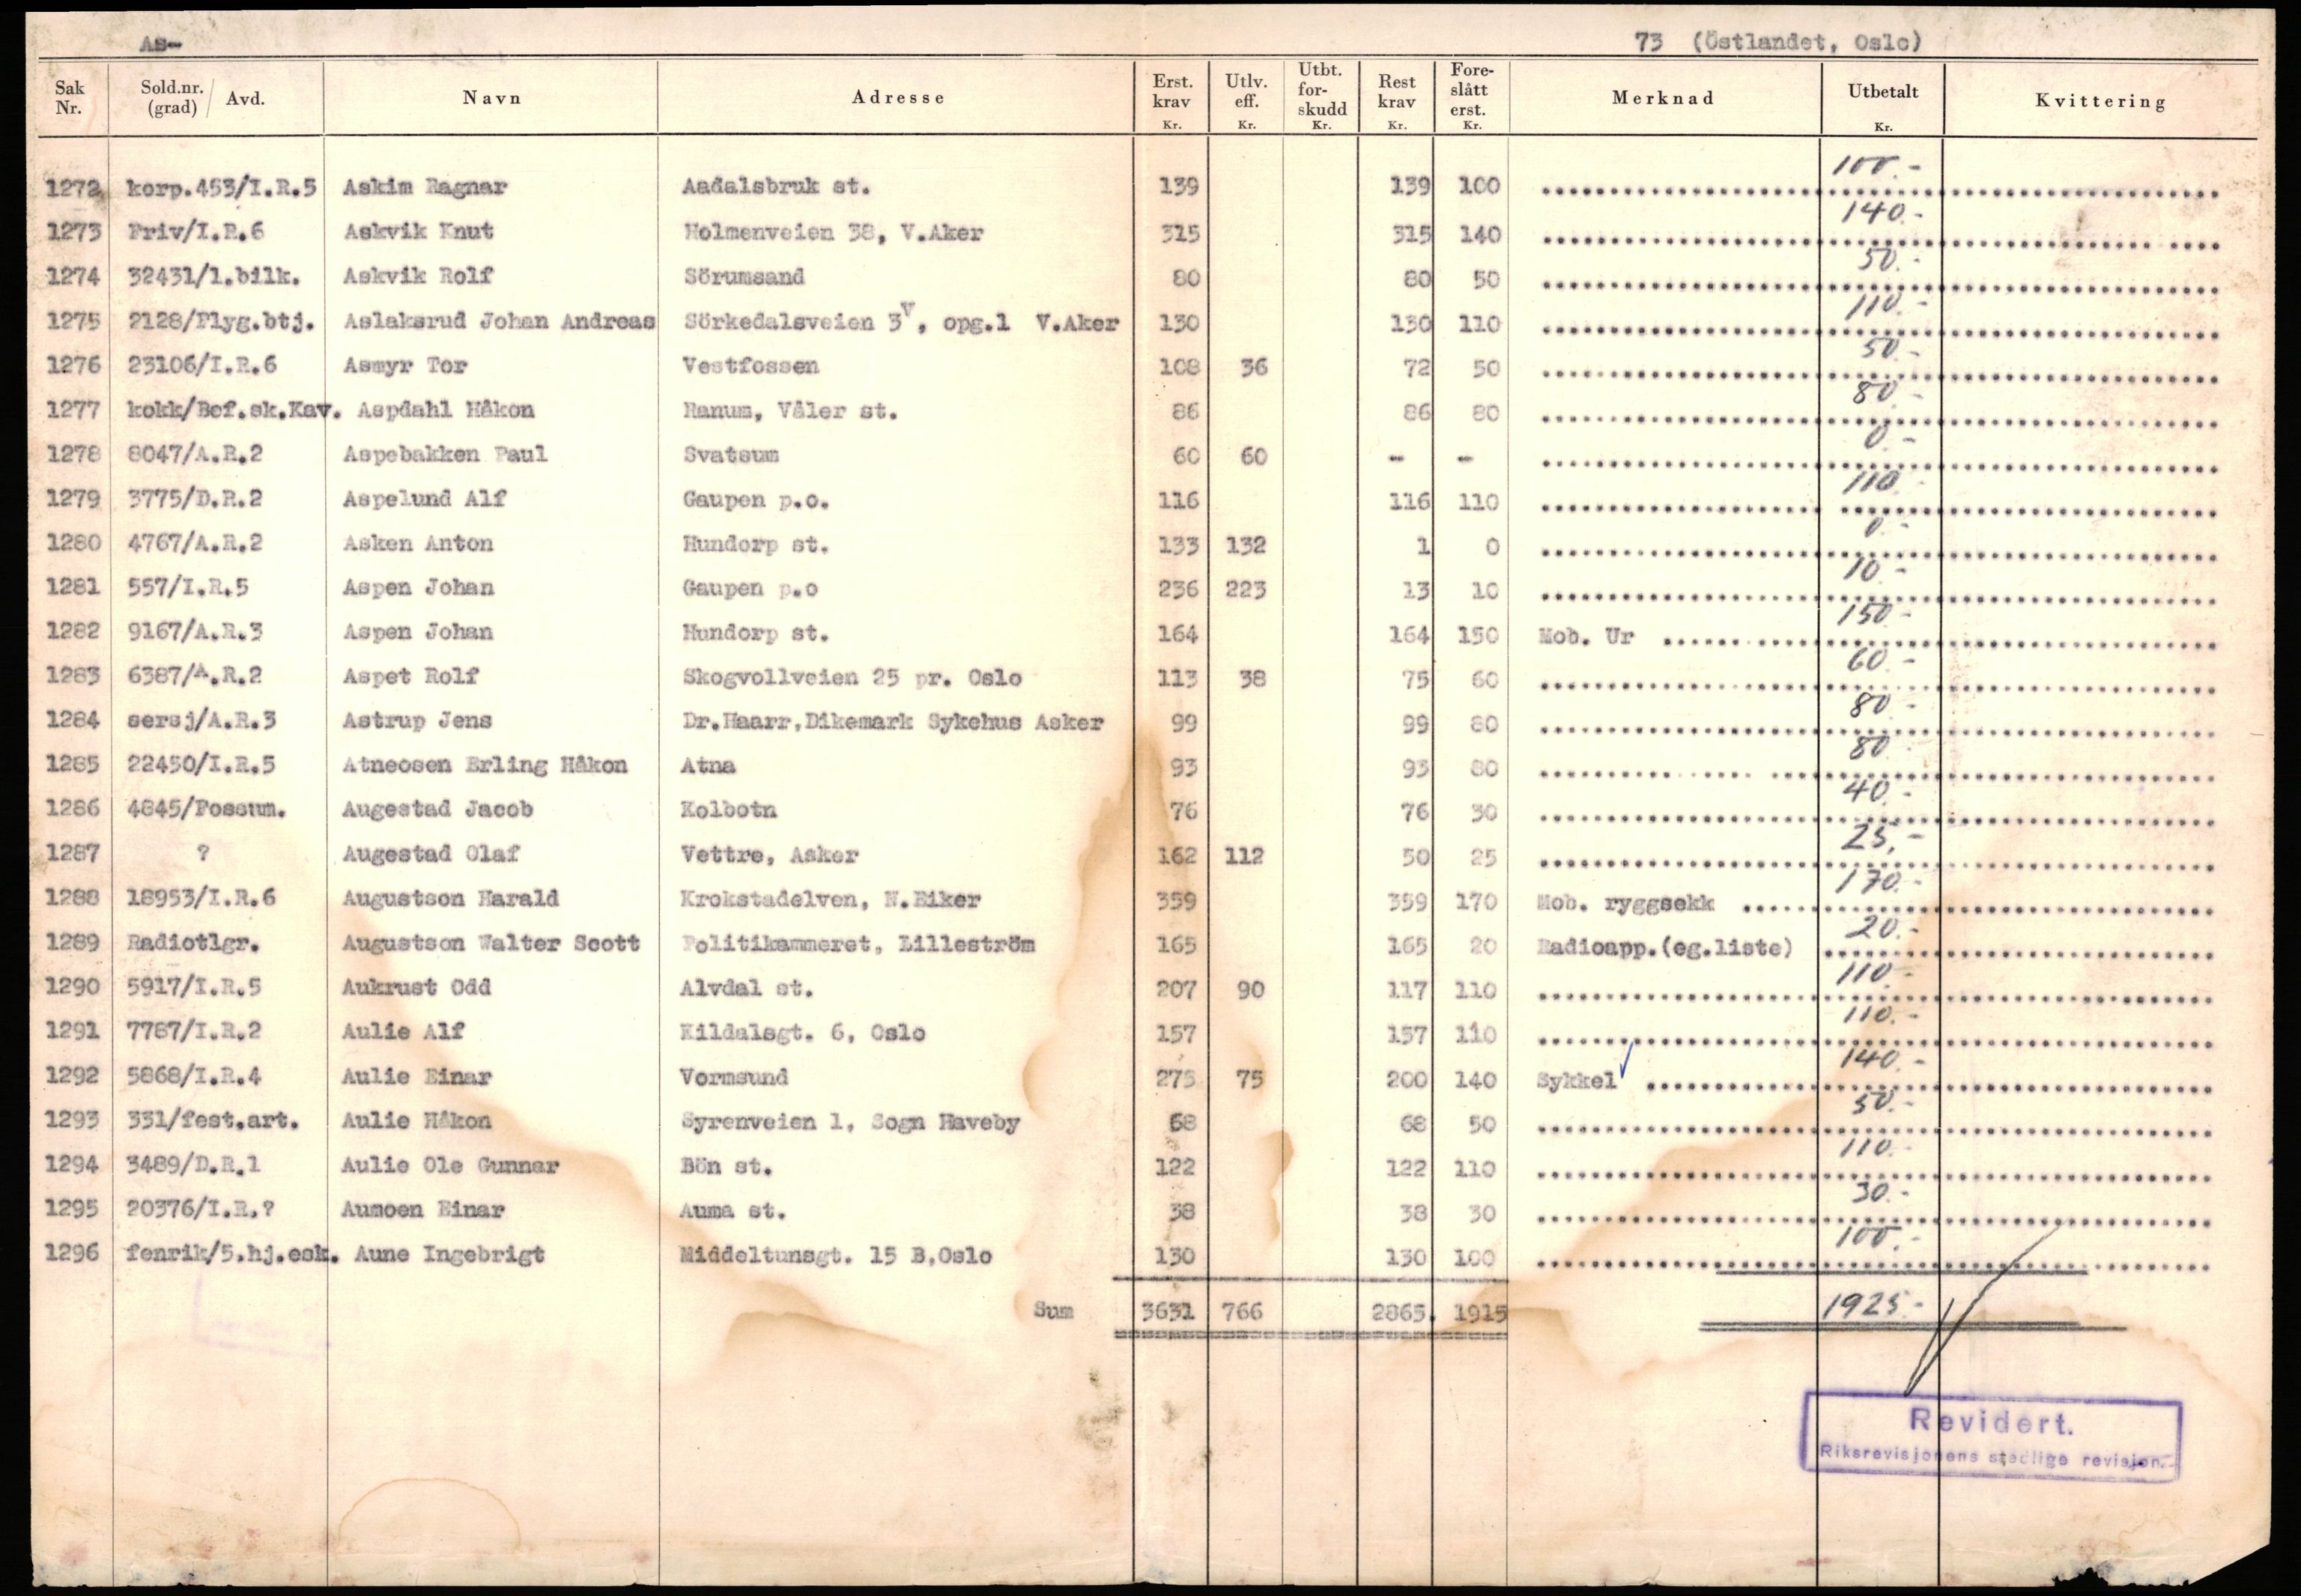 As-
73 (Östlandet, Oslo)
Sak Nr. Sold.nr. (grad) / Avd. Navn Adresse Erst. krav Kr. Utlv. eff. Kr. Utbt. for-skudd Kr. Rest krav Kr. Fore-slått erst. Kr. Merknad Utbetalt Kr. Kvittering
1272 korp.453/I.R.5 Askim Ragnar Aadalsbruk st. 139 139 100 100.-
1273 Friv/I.R.6 Askvik Knut Holmenveien 38, V.Aker 315 315 140 140.-
1274 32431/1.bilk. Askvik Rolf Sörumsand 80 80 50 50.-
1275 2128/Flyg.btj. Aslaksrud Johan Andreas Sörkedalsveien 3V, opg.1 V.Aker 130 130 110 110.-
1276 23106/I.R.6 Asmyr Tor Vestfossen 108 36 72 50 50.-
1277 kokk/Bef.sk.Kav. Aspdahl Håkon Ranum, Våler st. 86 86 80 80.-
1278 8047/A.R.2 Aspebakken Paul Svatsum 60 60 - - 0.-
1279 3775/D.R.2 Aspelund Alf Gaupen p.o. 116 116 110 110.-
1280 4767/A.R.2 Asken Anton Hundorp st. 133 132 1 0 0.-
1281 557/I.R.5 Aspen Johan Gaupen p.o 236 223 13 10 10.-
1282 9167/A.R.3 Aspen Johan Hundorp st. 164 164 150 Mob. Ur 150.-
1283 6387/A.R.2 Aspet Rolf Skogvollveien 25 pr. Oslo 113 38 75 60 60.-
1284 sersj/A.R.3 Astrup Jens Dr.Haarr,Dikemark Sykehus Asker 99 99 80 80.-
1285 22450/I.R.5 Atneosen Erling Håkon Atna 93 93 80 80.-
1286 4845/Fossum. Augestad Jacob Kolbotn 76 76 30 40.-
1287 ? Augestad Olaf Vettre, Asker 162 112 50 25 25,-
1288 18953/I.R.6 Augustson Harald Krokstadelven, N.Eiker 359 359 170 Mob. ryggsekk 170.-
1289 Radiotlgr. Augustson Walter Scott Politikammeret, Lilleström 165 165 20 Radioapp.(eg.liste) 20.-
1290 5917/I.R.5 Aukrust Odd Alvdal st. 207 90 117 110 110.-
1291 7787/I.R.2 Aulie Alf Kildalsgt. 6, Oslo 157 157 110 110.-
1292 5868/I.R.4 Aulie Einar Vormsund 275 75 200 140 Sykkel 140.-
1293 331/fest.art. Aulie Håkon Syrenveien 1, Sogn Haveby 68 68 50 50.-
1294 3489/D.R.1 Aulie Ole Gunnar Bön st. 122 122 110 110.-
1295 20376/I.R.? Aumoen Einar Auma st. 38 38 30 30.-
1296 fenrik/5.hj.esk. Aune Ingebrigt Middeltunsgt. 15 B,Oslo 130 130 100 100.-
Sum 3631 766 2865. 1915 1925.-
Revidert.
Riksrevisjonens stedlige revisjon.